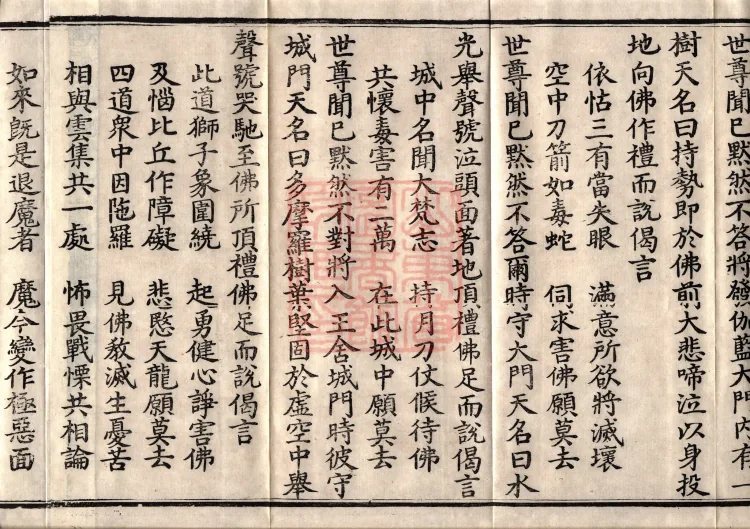 世尊聞已默然不答將離伽藍大門內有一
樹天名曰持勢即於佛前大悲啼泣以身投
地向佛作禮而說偈言
依怙三有當失眼　滿意所欲將滅壞
空中刀箭如毒蛇　伺求害佛願莫去
世尊聞已默然不答爾時守大門天名曰水
光舉聲號泣頭面著地頂禮佛足而說偈言
城中名聞大梵志　持月刀仗候待佛
共懷毒害有二萬　在此城中願莫去
世尊聞已默然不對將入王舍城門時彼守
城門天名曰多摩羅樹葉堅固於虛空中舉
聲號哭馳至佛所頂禮佛足而說偈言
此道獅子象圍繞　起勇健心諍害佛
及惱比丘作障礙　悲愍天龍願莫去
四道眾中因陁羅　見佛教滅生憂苦
相與雲集共一處　怖畏戰慄共相論
如來旣是退魔者　魔今變作極惡面